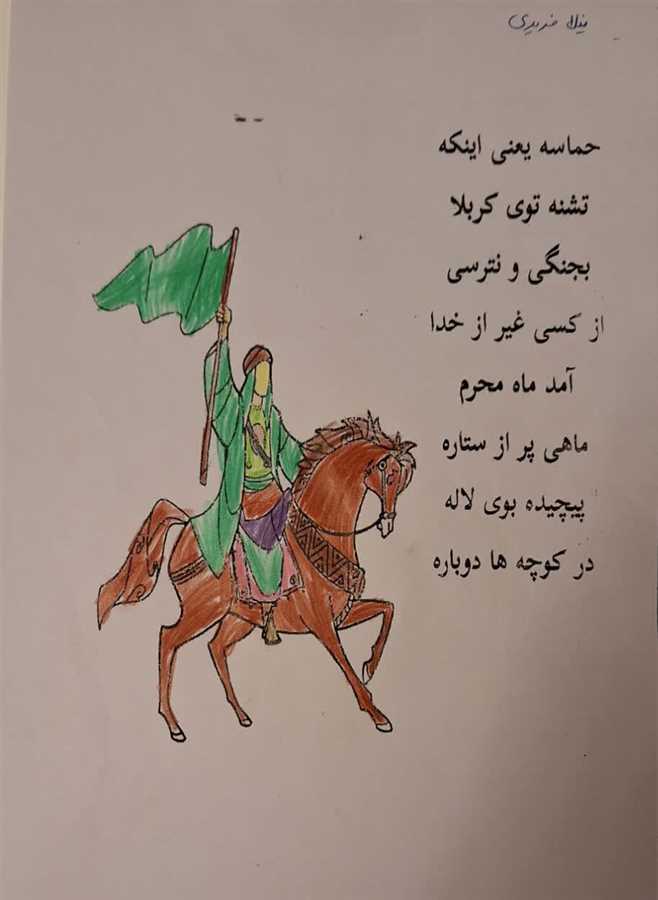 حماسه یعنی اینکه
تشنه توی کربلا
بجنگی و نترسی
از کسی غیر از خدا
آمد ماه محرم
ماهی پر از ستاره
پیچیده بوی لاله
در کوچه ها دوباره